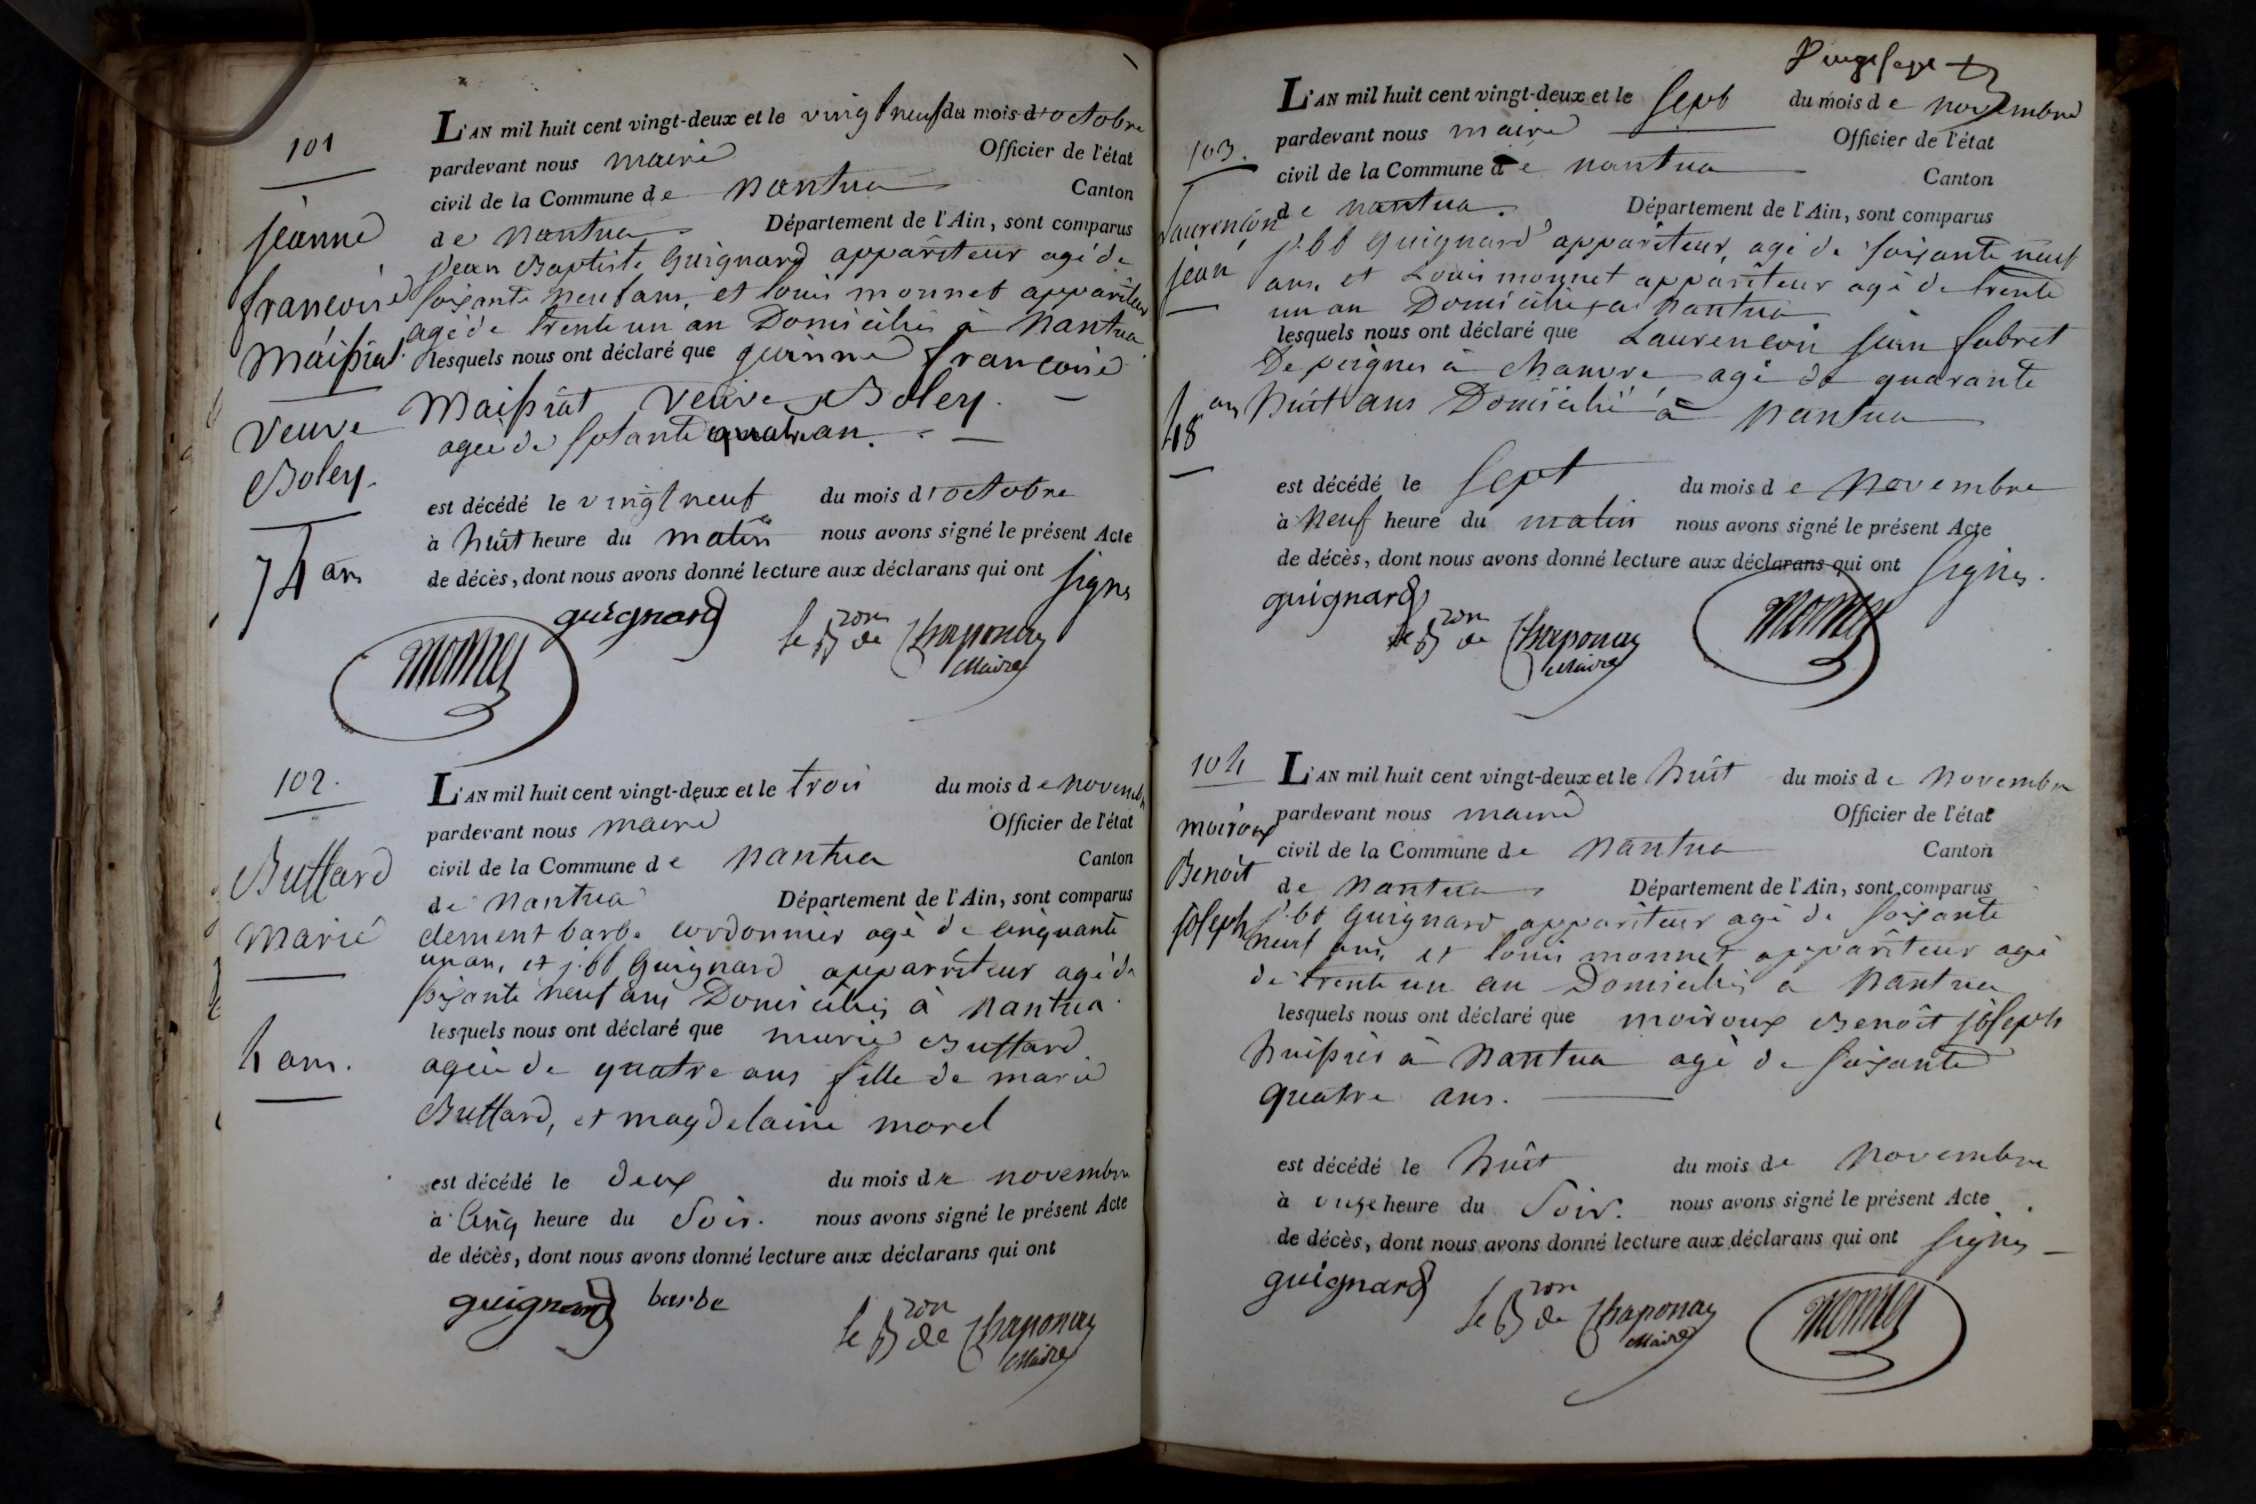 101
jeanne
francoise
Maissiat
veuve
Boley.
74 ans
L'AN mil huit cent vingt-deux et le vingt neuf du mois d'octobre
pardevant nous maire Officier de l'état
civil de la Commune de Nantua Canton
de Nantua Département de l'Ain, sont comparus
jean Baptiste Guignard appariteur agé de
soixante neuf ans, et louis monnet appariteur
agé de trente un an Domiciliés à Nantua
lesquels nous ont déclaré que jeanne francoise
Maissiat veuve Boley.
agée de sptante quatre an.
est décédé le vingt neuf du mois d'octobre
à huit heure du matin nous avons signé le présent Acte
de décès, dont nous avons donné lecture aux déclarans qui ont signés
guignard
le Bron de Chaponay
Maire
monnet
102.
Buffard
Marie
4 ans.
L'AN mil huit cent vingt-deux et le trois du mois de novembre
pardevant nous maire Officier de l'état
civil de la Commune de Nantua Canton
de Nantua Département de l'Ain, sont comparus
clement barbe cordonnier agé de cinquante
un an, et j. bt Guignard appariteur agé de
soixante neuf ans Domiciliés à Nantua.
lesquels nous ont déclaré que marie Buffard
agée de quatre ans fille de marie
Buffard, et magdelaine morel
est décédé le deux du mois de novembre
à Cinq heure du Soir. nous avons signé le présent Acte
de décès, dont nous avons donné lecture aux déclarans qui ont
guignard barbe
le Bron de Chaponay
Maire
103.
Laurencon
jean
48 ans
L'AN mil huit cent vingt-deux et le sept du mois de novembre
pardevant nous maire Officier de l'état
civil de la Commune de Nantua Canton
de Nantua. Département de l'Ain, sont comparus
j. bt Guignard appariteur, agé de soixante neuf
ans, et Louis monnet appariteur agé de trente
un an Domiciliés a Nantua
lesquels nous ont déclaré que Laurencon jean
De peignes à chanvre agé de quarante
huit ans Domicilié à Nantua
est décédé le sept du mois de Novembre
à Neuf heure du matin nous avons signé le présent Acte
de décès, dont nous avons donné lecture aux déclarans qui ont signés.
guignard
le Bron de Chaponay
Maire
monnet
104
moiroux
Benoit
joseph
L'AN mil huit cent vingt-deux et le huit du mois de Novembre
pardevant nous maire Officier de l'état
civil de la Commune de Nantua Canton
de Nantua Département de l'Ain, sont comparus
j. bt Guignard appariteur agé de soixante
neuf ans, et louis monnet appariteur agé
de trente un an Domiciliés a Nantua
lesquels nous ont déclaré que moiroux Benoît joseph
huissier à Nantua agé de soixante
quatre ans.
est décédé le huit du mois de Novembre
à onze heure du Soir. nous avons signé le présent Acte
de décès, dont nous avons donné lecture aux déclarans qui ont signés
guignard
le Bron de Chaponay
Maire
monnet